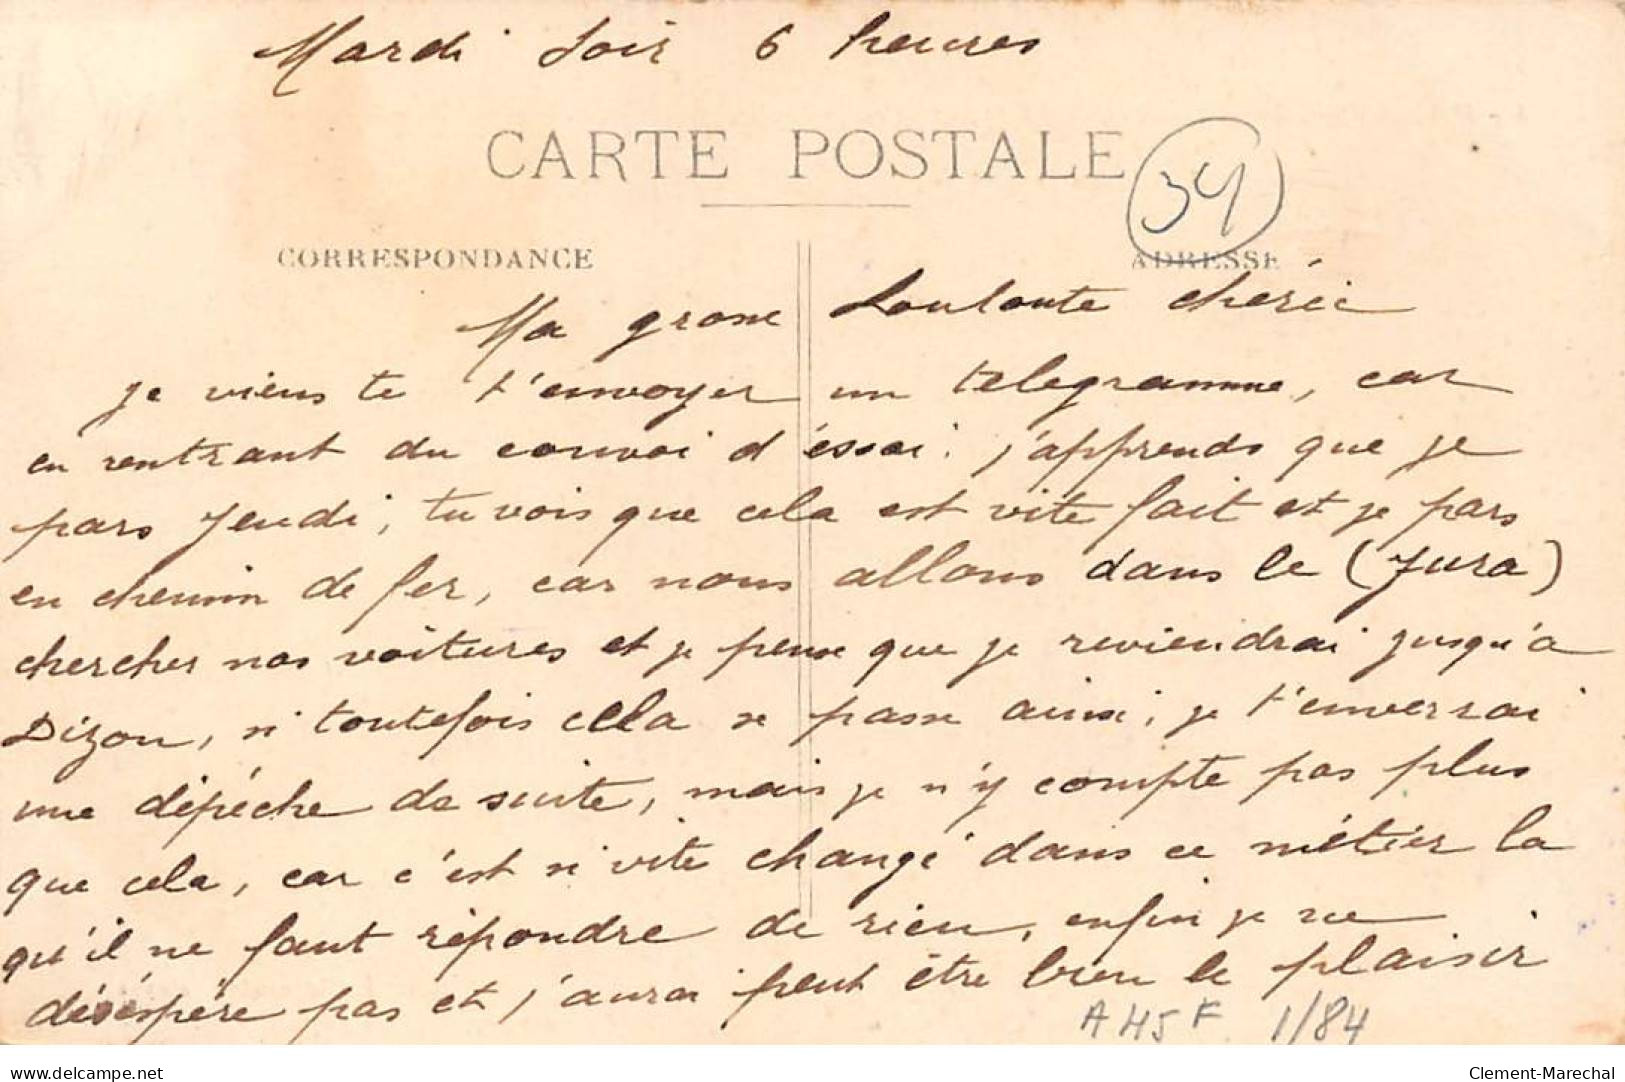 Mardi soir 6 heures
CARTE POSTALE
34
CORRESPONDANCE
ADRESSE
Ma grosse Louloute chérie
je viens te t'envoyer un telegramme, car
en rentrant du convoi d'éssai. j'apprends que je
pars Jeudi, tu vois que cela est vite fait et je pars
en chemin de fer, car nous allons dans le (Jura)
chercher nos voitures et je pense que je reviendrai jusqu'a
Dizon, si toutefois cela se passe ainsi, je t'enverrai
une dépéche de suite, mais je n'y compte pas plus
que cela, car c'est si vite changé dans ce métier la
qu'il ne faut répondre de rien, enfin je ne
déséspére pas et j'aurai peut être bien le plaisir
A 45 F 1/84
delcampe.net
Clement-Marechal